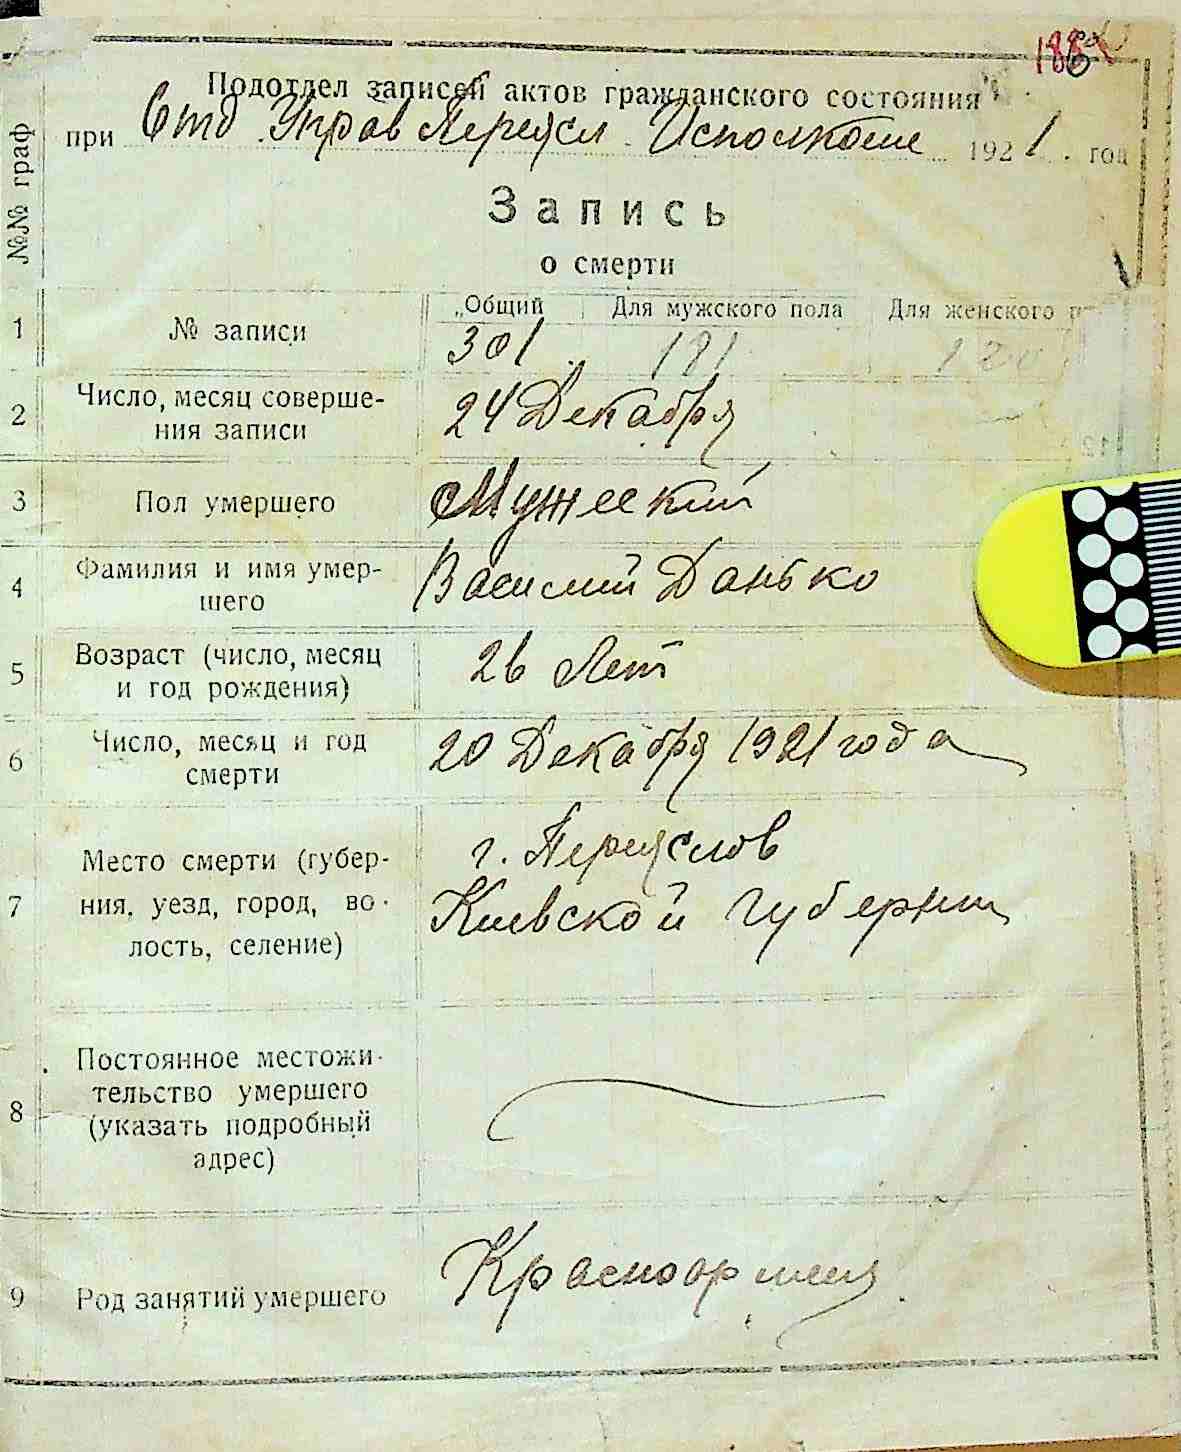 188
Подотдел записей актов гражданского состояния
при Отд Управ Переясл Исполкоме 1921 . год
№№ граф
Запись
о смерти
1 № записи „Общий Для мужского пола Для женского
301 181
2 Число, месяц соверше-
ния записи 24 Декабря
3 Пол умершего Мужеский
4 Фамилия и имя умер-
шего Василий Данько
5 Возраст (число, месяц
и год рождения) 26 Лет
6 Число, месяц и год
смерти 20 Декабря 1921 года
7 Место смерти (губер-
ния, уезд, город, во-
лость, селение)
г. Переяслов
Киевской Губернии
8 Постоянное местожи-
тельство умершего
(указать подробный
адрес)
9 Род занятий умершего Красноармеец